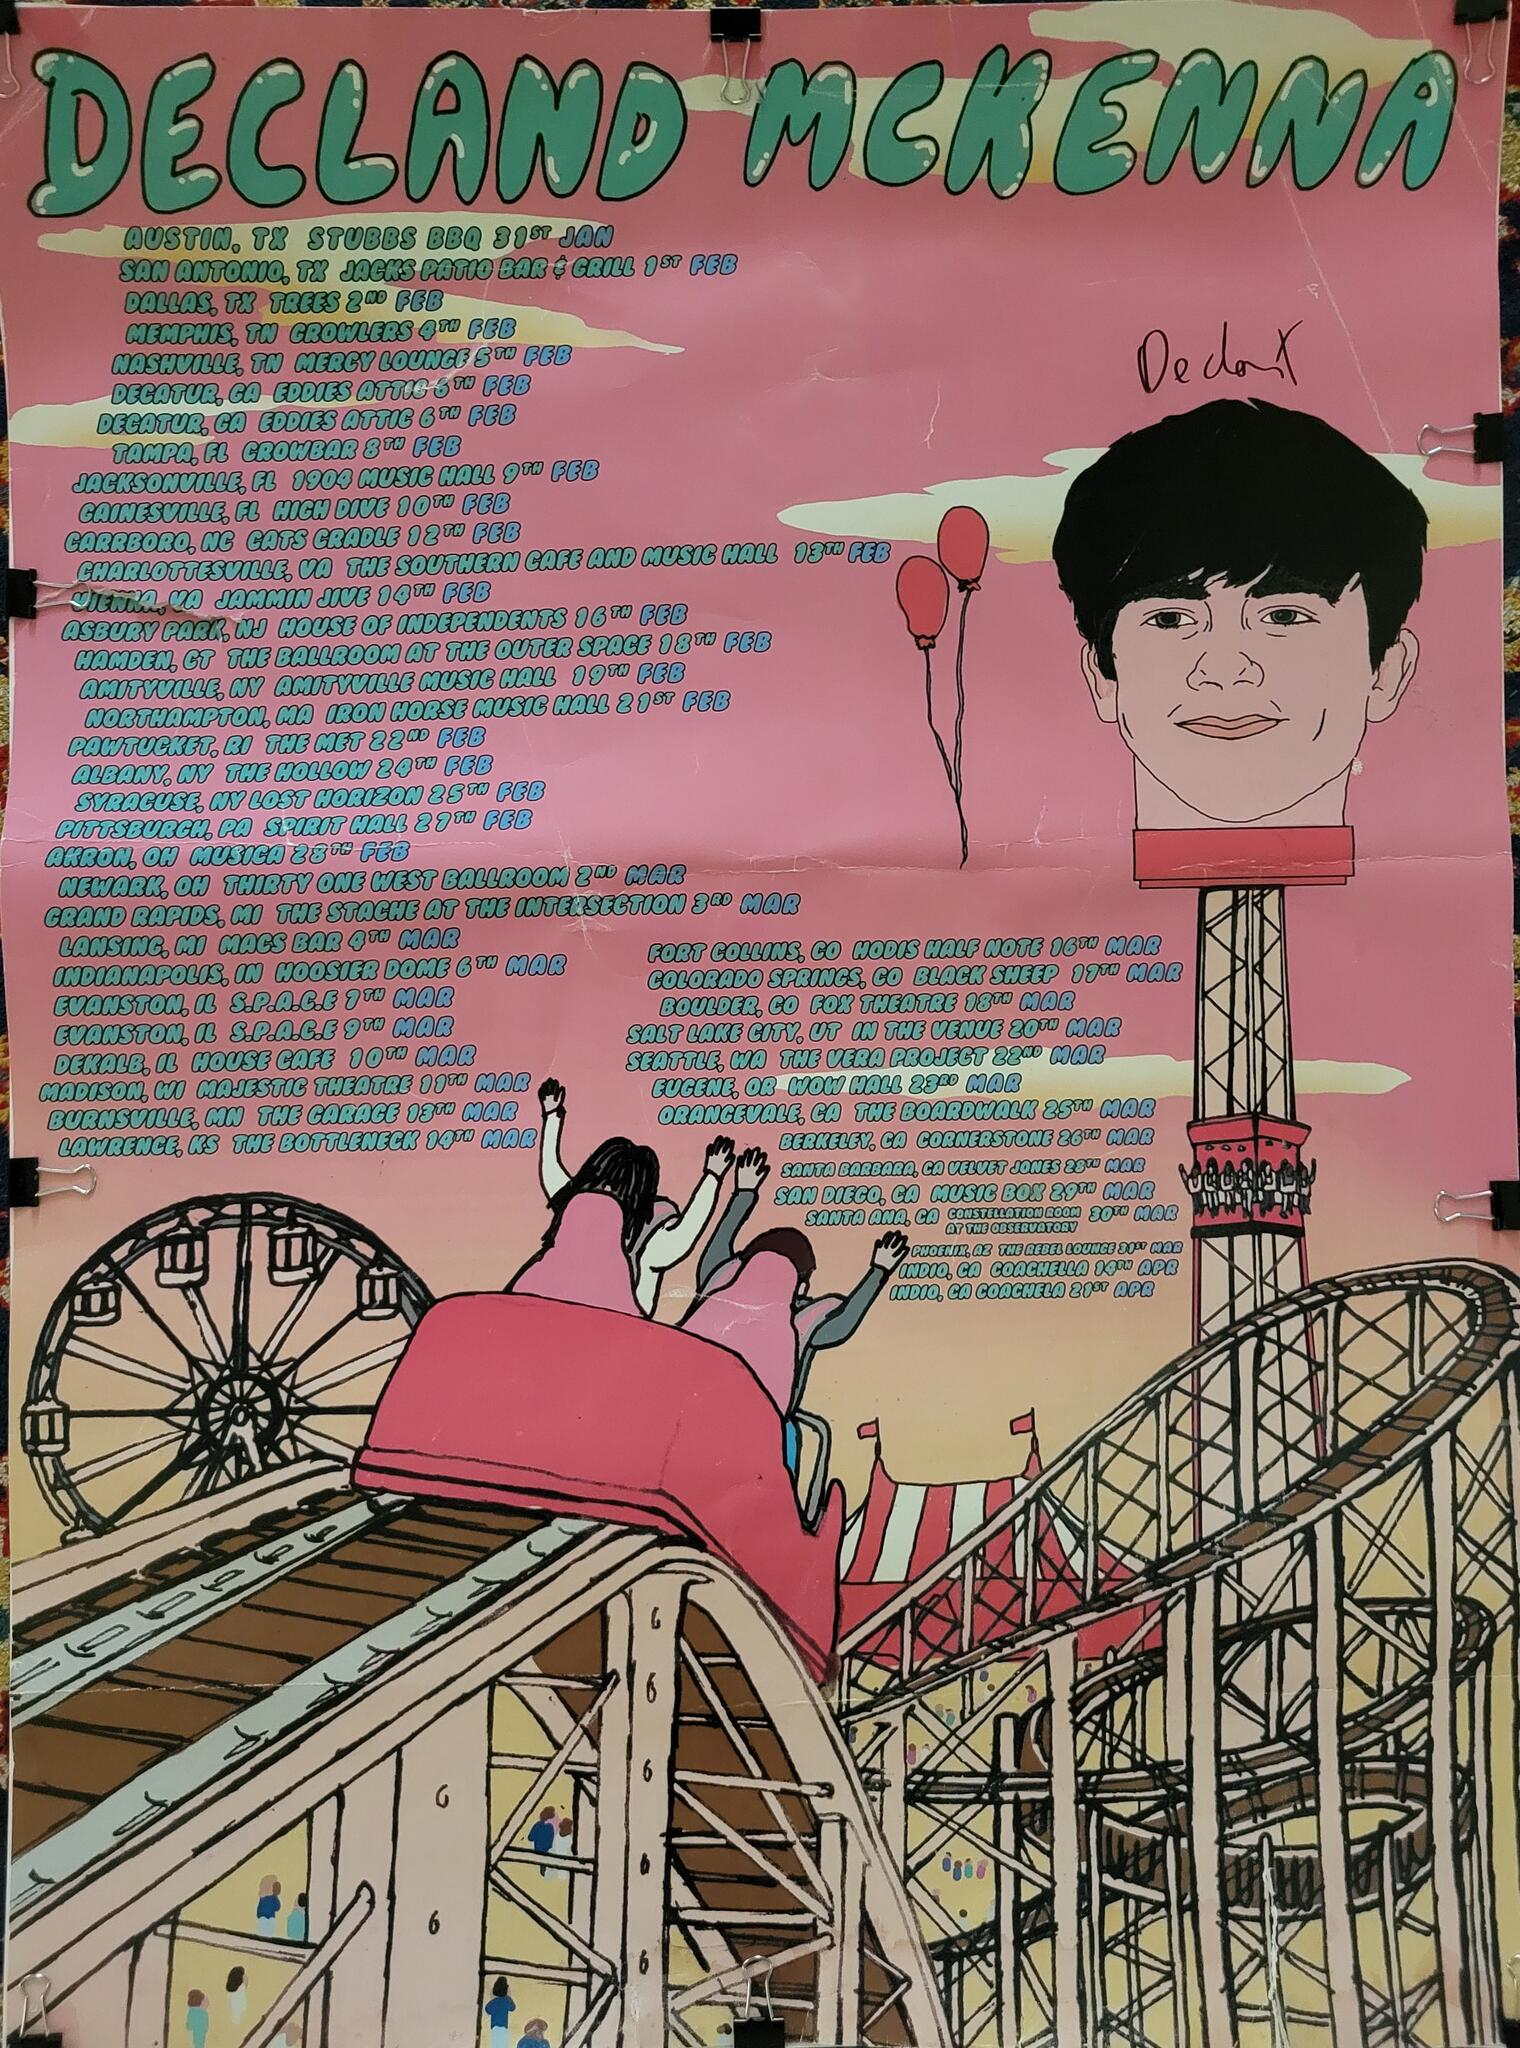 DECLAND MCKENNA
AUSTIN, TX STUBBS BBQ 31ST JAN
SAN ANTONIO, TX JACKS PATIO BAR & GRILL 1ST FEB
DALLAS, TX TREES 2ND FEB
MEMPHIS, TN GROWLERS 4TH FEB
NASHVILLE, TN MERCY LOUNGE 5TH FEB
DECATUR, GA EDDIES ATTIC 6TH FEB
DECATUR, GA EDDIES ATTIC 6TH FEB
TAMPA, FL CROWBAR 8TH FEB
JACKSONVILLE, FL 1904 MUSIC HALL 9TH FEB
GAINESVILLE, FL HIGH DIVE 10TH FEB
CARRBORO, NC CATS CRADLE 12TH FEB
CHARLOTTESVILLE, VA THE SOUTHERN CAFE AND MUSIC HALL 13TH FEB
VIENNA, VA JAMMIN JIVE 14TH FEB
ASBURY PARK, NJ HOUSE OF INDEPENDENTS 16TH FEB
HAMDEN, CT THE BALLROOM AT THE OUTER SPACE 18TH FEB
AMITYVILLE, NY AMITYVILLE MUSIC HALL 19TH FEB
NORTHAMPTON, MA IRON HORSE MUSIC HALL 21ST FEB
PAWTUCKET, RI THE MET 22ND FEB
ALBANY, NY THE HOLLOW 24TH FEB
SYRACUSE, NY LOST HORIZON 25TH FEB
PITTSBURGH, PA SPIRIT HALL 27TH FEB
AKRON, OH MUSICA 28TH FEB
NEWARK, OH THIRTY ONE WEST BALLROOM 2ND MAR
GRAND RAPIDS, MI THE STACHE AT THE INTERSECTION 3RD MAR
LANSING, MI MACS BAR 4TH MAR
INDIANAPOLIS, IN HOOSIER DOME 6TH MAR
EVANSTON, IL S.P.A.C.E 7TH MAR
EVANSTON, IL S.P.A.C.E 9TH MAR
DEKALB, IL HOUSE CAFE 10TH MAR
MADISON, WI MAJESTIC THEATRE 11TH MAR
BURNSVILLE, MN THE GARAGE 13TH MAR
LAWRENCE, KS THE BOTTLENECK 14TH MAR
FORT COLLINS, CO HODIS HALF NOTE 16TH MAR
COLORADO SPRINGS, CO BLACK SHEEP 17TH MAR
BOULDER, CO FOX THEATRE 18TH MAR
SALT LAKE CITY, UT IN THE VENUE 20TH MAR
SEATTLE, WA THE VERA PROJECT 22ND MAR
EUGENE, OR WOW HALL 23RD MAR
ORANGEVALE, CA THE BOARDWALK 25TH MAR
BERKELEY, CA CORNERSTONE 26TH MAR
SANTA BARBARA, CA VELVET JONES 28TH MAR
SAN DIEGO, CA MUSIC BOX 29TH MAR
SANTA ANA, CA CONSTELLATION ROOM 30TH MAR
AT THE OBSERVATORY
PHOENIX, AZ THE REBEL LOUNGE 31ST MAR
INDIO, CA COACHELLA 14TH APR
INDIO, CA COACHELA 21ST APR